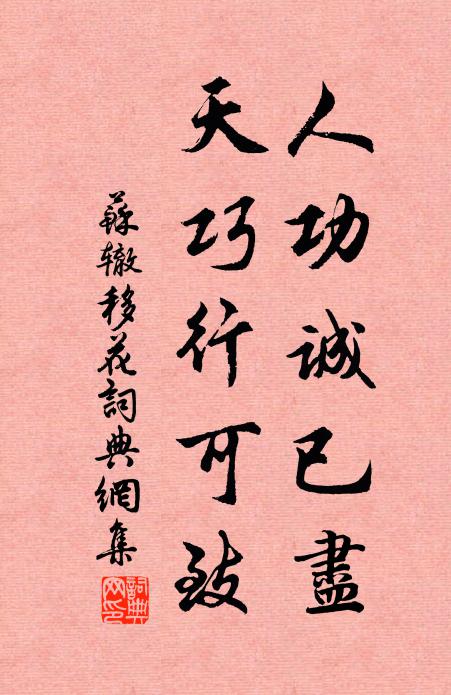 人功誠已盡
天巧行可致
蘇轍移花詞典網集
詞典網印